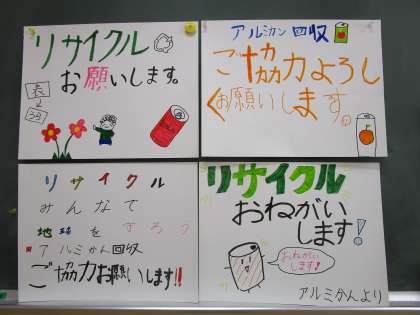 リサイクル
お願いします。
アルミカン 回収
ご協力よろし
くお願いします。
リサイクル
みんなで
地球を守ろう
アルミかん回収
ご協力お願いします!!
リサイクル
おねがい
します!
おねがい
します!
アルミかんより